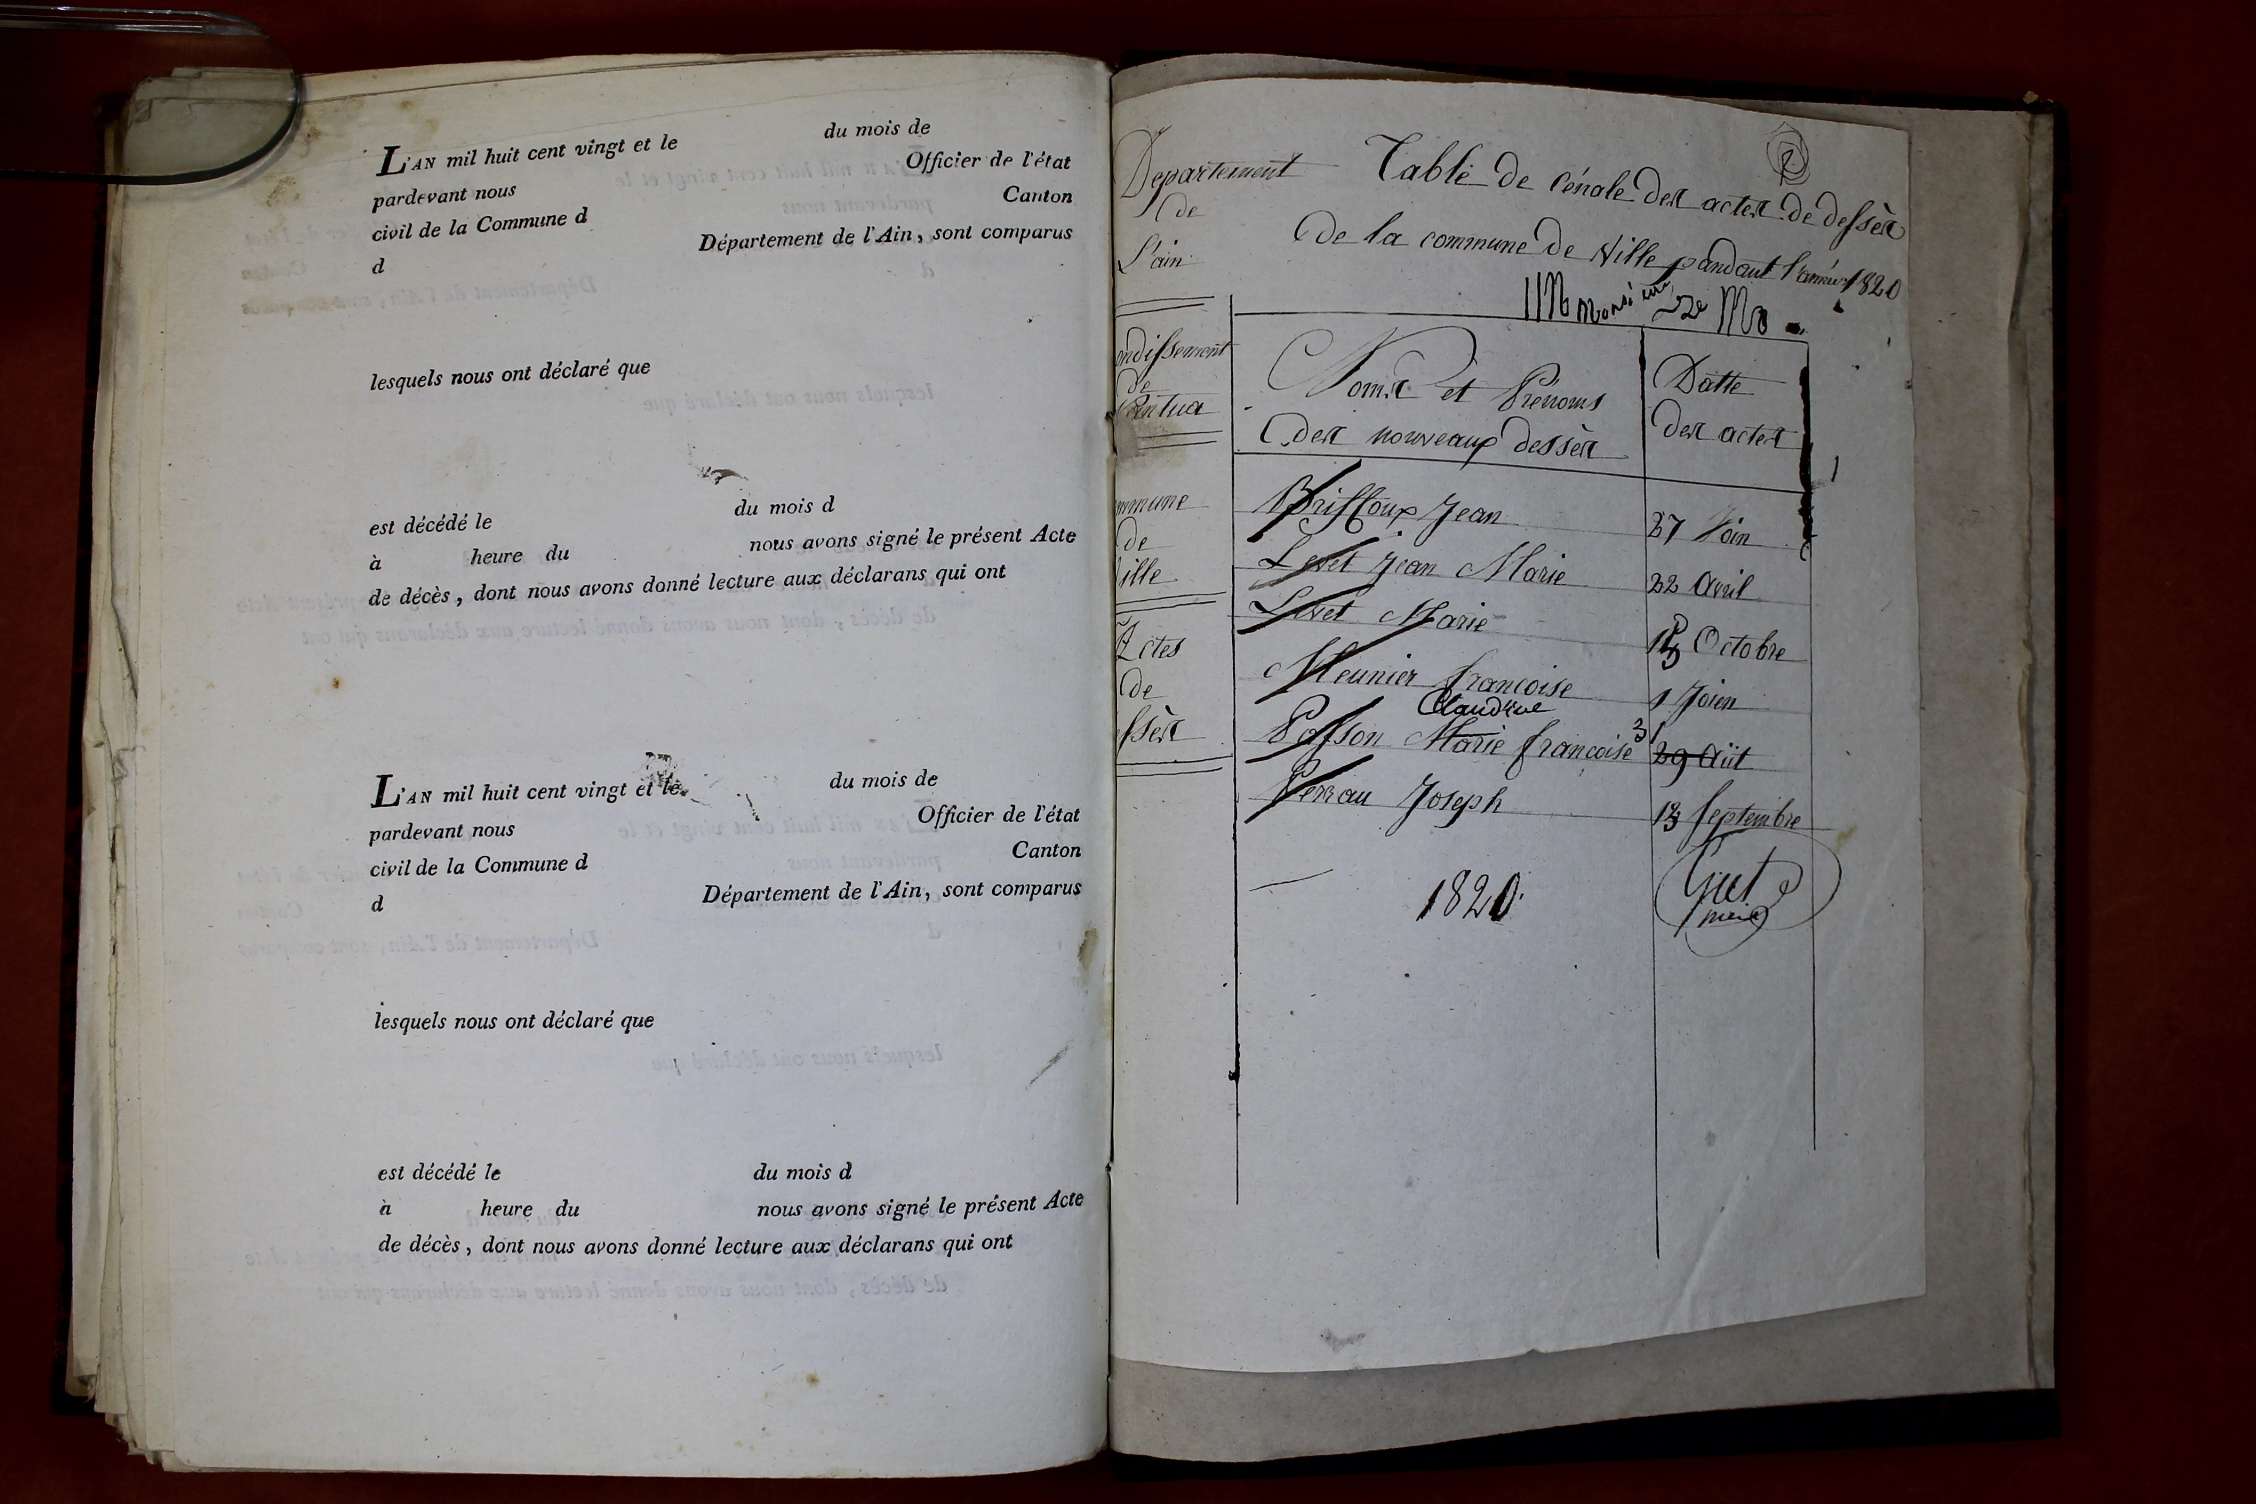 L'AN mil huit cent vingt et le du mois de
pardevant nous Officier de l'état
civil de la Commune d Canton
d Département de l'Ain, sont comparus
lesquels nous ont déclaré que
est décédé le du mois d
à heure du nous avons signé le présent Acte
de décès, dont nous avons donné lecture aux déclarans qui ont
L'AN mil huit cent vingt et le du mois de
pardevant nous Officier de l'état
civil de la Commune d Canton
d Département de l'Ain, sont comparus
lesquels nous ont déclaré que
est décédé le du mois d
à heure du nous avons signé le présent Acte
de décès, dont nous avons donné lecture aux déclarans qui ont
Departement
de
L'ain
ondissement
de
mmune
de
ille
Actes
de
Table de cénale des actes de dessès
de la commune de Ville pandant l'année 1820
Noms et Prénoms
des nouveaux dessès
Datte
des actes
Brissoux Jean 27 Join
Levet Jean Marie 22 Avril
Livet Marie Octobre
Meunier francoise 1 Joien
Claudine
Posson Marie francoise 31 29 Aüt
Perrau Joseph 13 septembre
1820